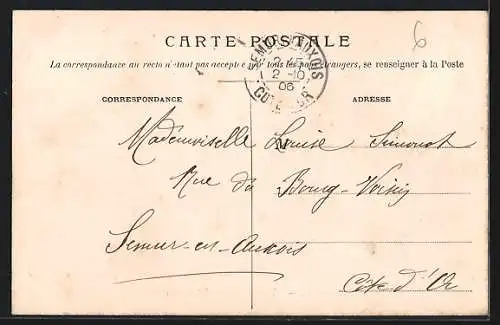 6
CARTE POSTALE
La correspondance au recto n'étant pas acceptée par tous les pays étrangers, se renseigner à la Poste
SEMUR-EN-AUXOIS
2-10
06
COTE-D'OR
CORRESPONDANCE
ADRESSE
M
Mademoiselle Louise Simonot
Rue du Bourg-Voisin
Semur-en-Auxois
Côte d'Or